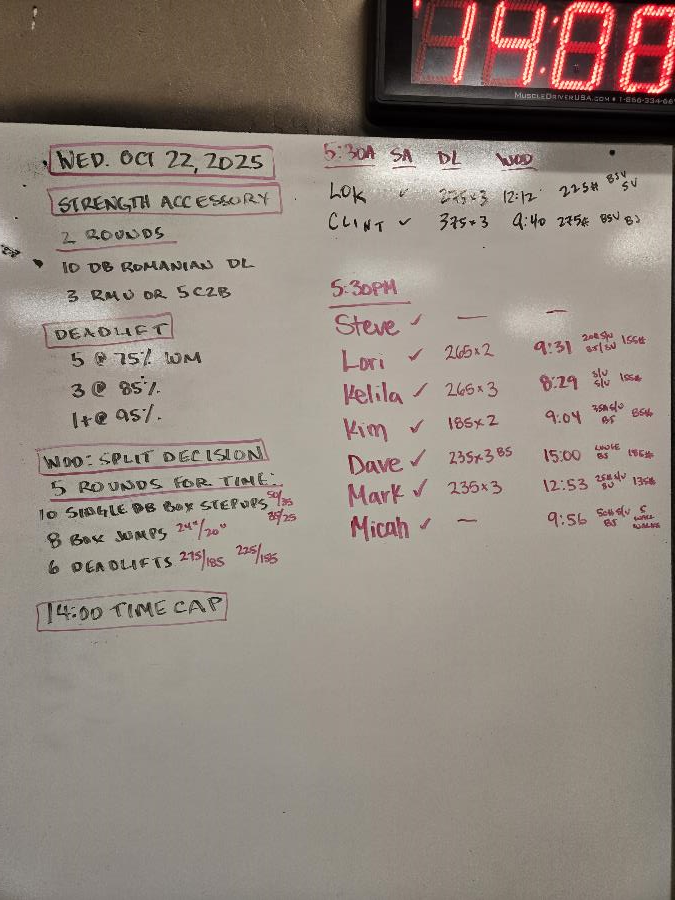 14:00
MUSCLEDRIVERUSA.COM • 1-866-334-66
WED. OCT 22, 2025
STRENGTH ACCESSORY
2 ROUNDS
10 DB ROMANIAN DL
3 RMU OR 5 C2B
DEADLIFT
5 @ 75% WM
3 @ 85%
1+@ 95%.
WOD: SPLIT DECISION
5 ROUNDS FOR TIME:
10 SINGLE DB BOX STEPUPS 50/35 35/25
8 BOX JUMPS 24"/20"
6 DEADLIFTS 275/185 225/155
14:00 TIME CAP
5:30A SA DL WOD
LOK ✓ 275×3 12:12 225# BSU SU
CLINT ✓ 375×3 9:40 275# BSU BJ
5:30PM
Steve ✓ — —
Lori ✓ 265×2 9:31 20# S/U BS/SU 155#
Kelila ✓ 265×3 8:29 S/U S/U 155#
Kim ✓ 185×2 9:04 35# S/U BS 85#
Dave ✓ 235×3 BS 15:00 BS 185#
Mark ✓ 235×3 12:53 25# S/U SU 135#
Micah ✓ — 9:56 50# S/U BS 5 WALL WALKS